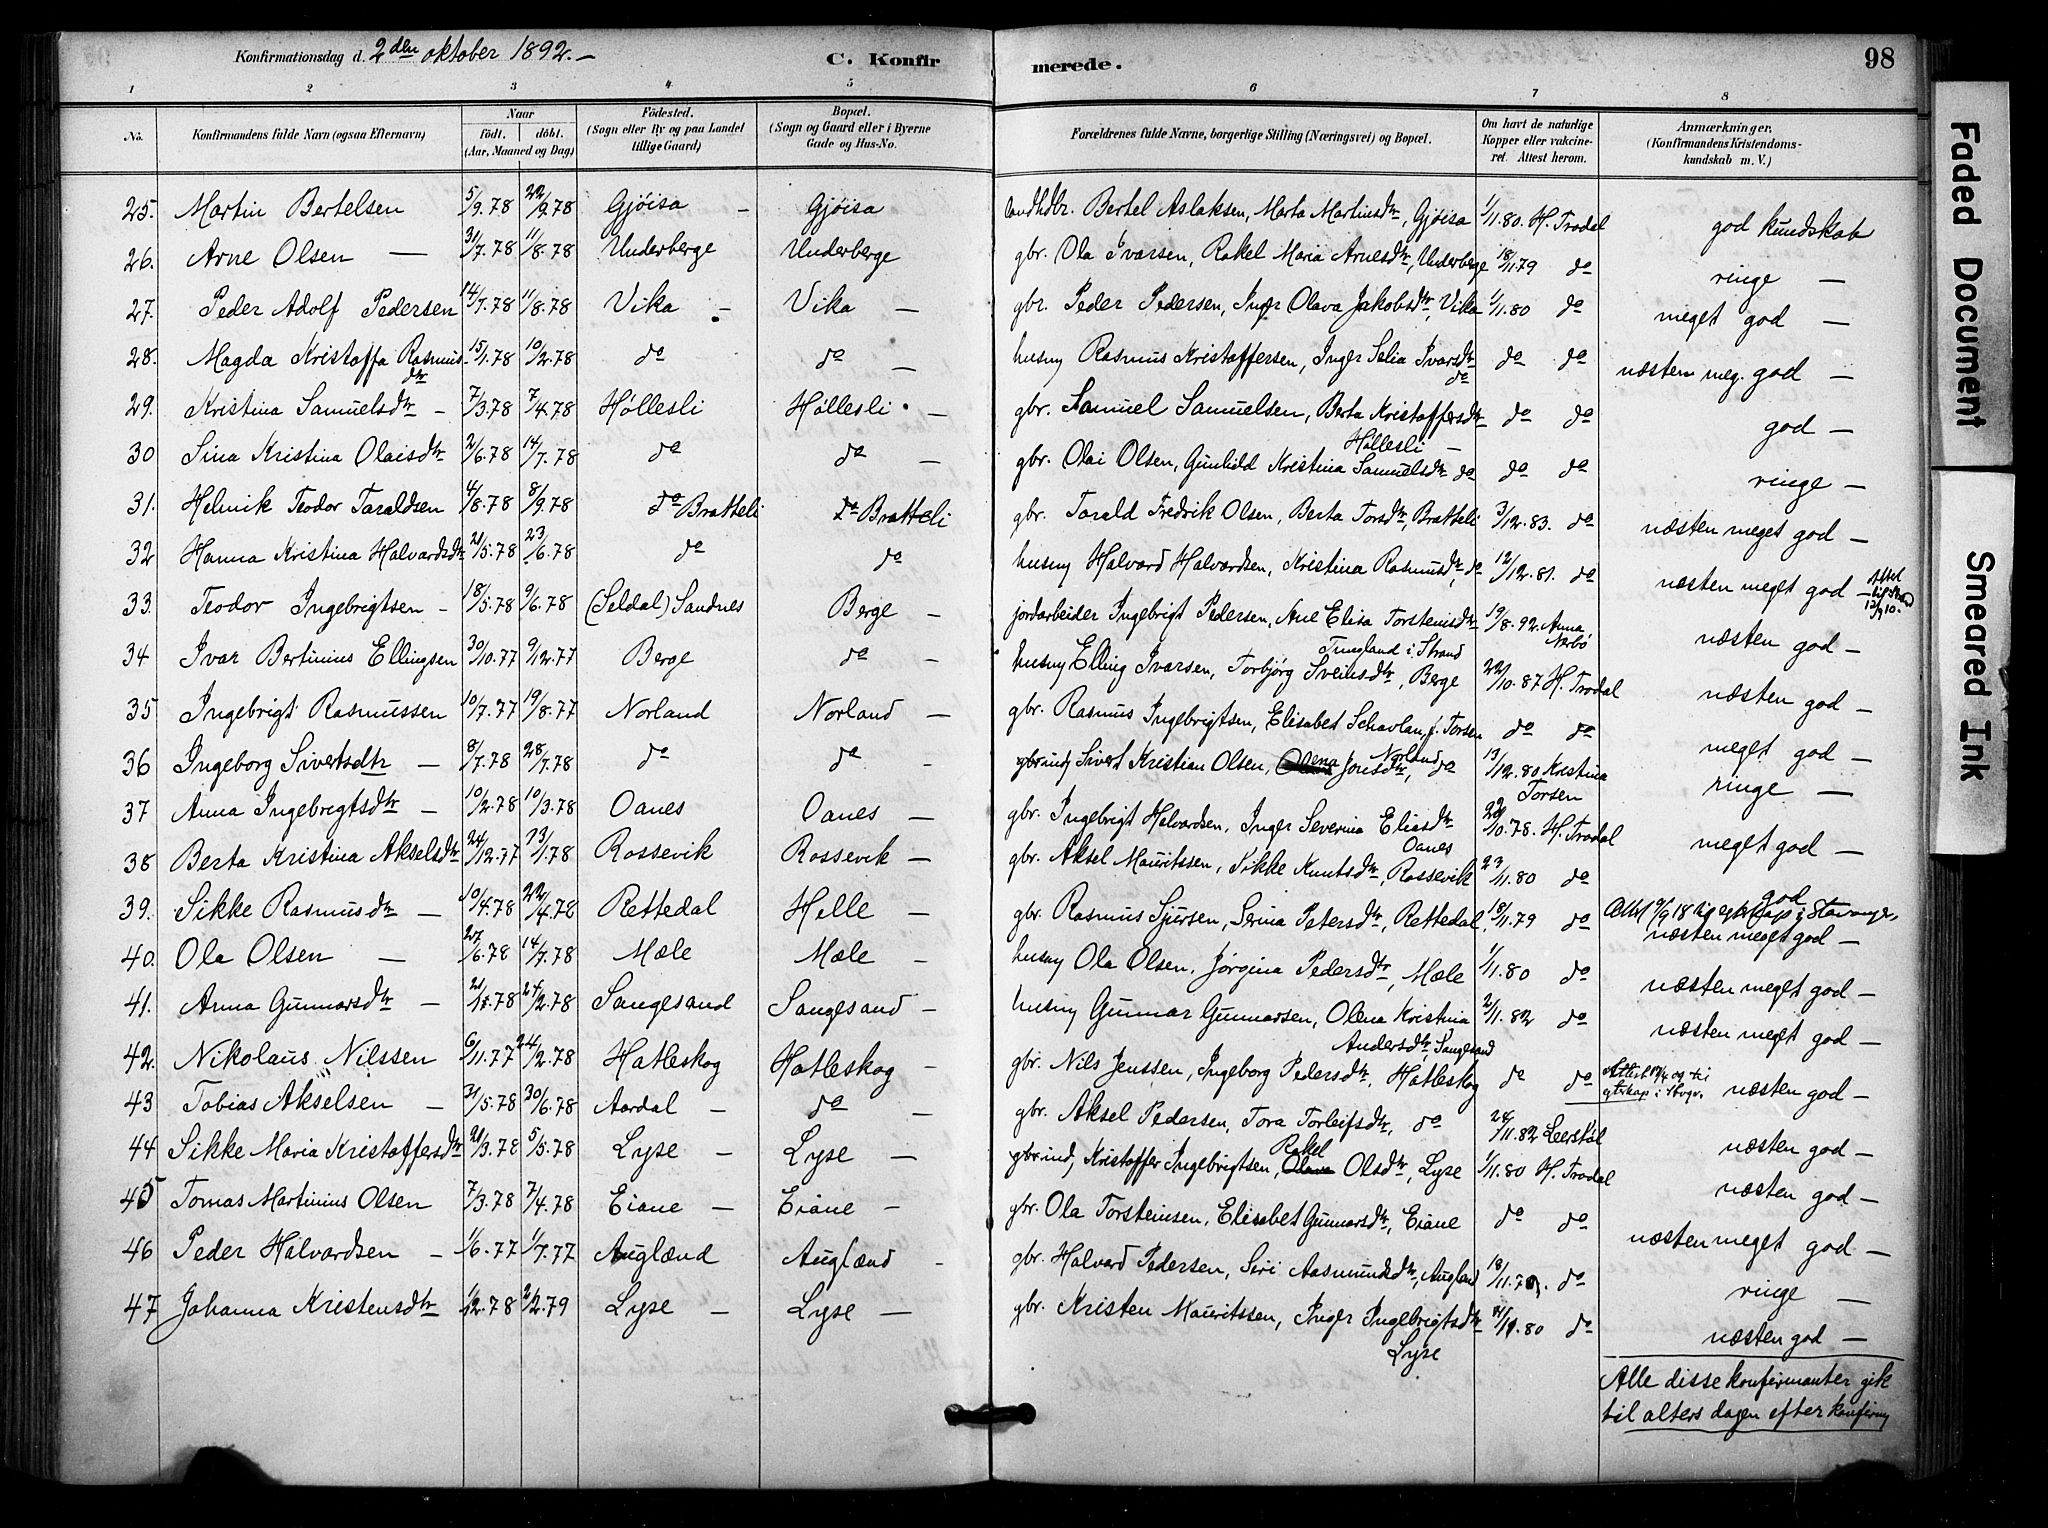 Konfirmationsdag d. 2den oktober 1892. – C. Konfirmerede. 98
1 2 3 4 5 6 7 8
No. Konfirmandens fulde Navn (ogsaa Efternavn) Naar födt. döbt. (Aar, Maaned og Dag) Födested. (Sogn eller By og paa Landet tillige Gaard) Bopæl. (Sogn og Gaard eller i Byerne Gade og Hus-No. Forældrenes fulde Navne, borgerlige Stilling (Næringsvei) og Bopæl. Om havt de naturlige Kopper eller vakcineret. Attest herom. Anmærkninger. (Konfirmandens Kristendomskundskab m. V.)
25. Martin Bertelsen 5/9.78 22/9.78 Gjöisa – Gjöisa landhdbr. Bertel Aslaksen, Marta Martinsdtr, Gjöisa 1/11.80 H. Trodal god kundskab
26. Arne Olsen — 31/7.78 11/8.78 Underberge Underberge gbr. Ola Ivarsen, Rakel Maria Arnesdtr, Underberge 18/11.79 do ringe —
27. Peder Adolf Pedersen 14/7.78 11/8.78 Vika – Vika — gbr. Peder Pedersen, Inger Olava Jakobsdtr, Vika 1/11.80 do meget god —
28. Magda Kristoffa Rasmusdtr 15/1.78 10/2.78 do do — husmy Rasmus Kristoffersen, Inger Selia Ivarsdtr do do do næsten meg. god —
29. Kristina Samuelsdtr – 7/3.78 7/4.78 Höllesli Höllesli – gbr. Samuel Samuelsen, Berta Kristoffersdtr Höllesli – do do god —
30 Sina Kristina Olaisdtr 2/6.78 14/7.78 do do — gbr. Olai Olsen, Gunhild Kristina Samuelsdtr do do do ringe —
31. Helmik Teodor Taraldsen 4/8.78 8/9.78 do Bratteli do Bratteli gbr. Tarald Fredrik Olsen, Berta Torsdtr, Bratteli 3/12.83. do næsten meget god —
32 Hanna Kristina Halvardsdtr 21/5.78 23/6.78 do do husmy Halvard Halvardsen, Kristina Rasmusdtr, do 12/12.81. do næsten meget god —
33. Teodor Ingebrigtsen – 18/5.78 9/6.78 (Seldal) Sandnes Berge – jordarbeider Ingebrigt Pedersen, Ane Elisa Torsteinsdtr Tungland i Strand 19/8.92. Anna Nærbö næsten god —
34 Ivar Bertinius Ellingsen 30/10.77 9/12.77 Berge do – husmy Elling Ivarsen, Torbjörg Sveinsdtr, Berge 22/10.87 H. Trodal næsten god —
35 Ingebrigt Rasmussen 10/7.77 19/8.77 Norland Norland — gbr. Rasmus Ingebrigtsen, Elisabet Schavlan, f. Torsen Norland do do meget god —
36 Ingeborg Sivertsdtr — 8/7.78 28/7.78 do do – Sivert Kristian Olsen, Olena Jonsdtr, do 13/12.80 Kristina Torsen ringe —
37 Anna Ingebrigtsdtr — 10/2.78 10/3.78 Oanes Oanes — gbr. Ingebrigt Halvardsen, Inger Severina Eliasdtr Oanes 22/10.78. H. Trodal meget god —
38 Berta Kristina Akselsdtr 24/12.77 13/1.78 Rossevik Rossevik — gbr. Aksel Mauritssen, Sikke Knutsdtr, Rossevik 23/11.80 do god
39. Sikke Rasmusdtr — 10/4.78 22/4.78 Rettedal Helle — gbr. Rasmus Sjursen, Serina Petersdtr, Rettedal 18/11.79 do næsten meget god —
40. Ola Olsen — 27/6.78 14/7.78 Mæle Mæle – husmy Ola Olsen, Jörgina Pedersdtr, Mæle 1/11.80 do næsten meget god —
41. Anna Gunnarsdtr – 24/2.78 Sangesand Sangesand – husmy Gunnar Gunnarsen, Olena Kristina Andersdtr, Sangesand 2/11.82 do næsten meget god —
42. Nikolaus Nilssen 6/11.77 24/2.78 Hatleskog Hatleskog – gbr. Nils Jenssen, Ingeborg Pedersdtr, Hatleskog do do næsten god —
43 Tobias Akselsen – 31/5.78 30/6.78 Aardal – do – gbr. Aksel Pedersen, Tora Torleifsdtr, do 24/11.82 næsten god —
44 Sikke Maria Kristoffersdtr 21/3.78 5/5.78 Lyse — Lyse — Kristoffer Ingebrigtsen, Rakel Olsdtr, Lyse 1/11.80 H. Trodal næsten god —
45 Tomas Martinius Olsen 7/3.78 7/4.78 Eiane – Eiane – gbr. Ola Torsteinsen, Elisabet Gunnarsdtr, Eiane do do næsten meget god —
46 Peder Halvardsen – 1/6.77 1/7.77 Auglænd Auglænd – gbr. Halvard Pedersen, Siri Aasmundsdtr, Augland 18/11.79. do ringe —
47 Johanna Kristensdtr 1/12.78 2/2.79 Lyse – Lyse — gbr. Kristen Mauritssen, Inger Ingebrigtsdtr Lyse do næsten god —
Alle disse konfirmanter gik
til alters dagen efter konfirm
Faded Document
Smeared Ink